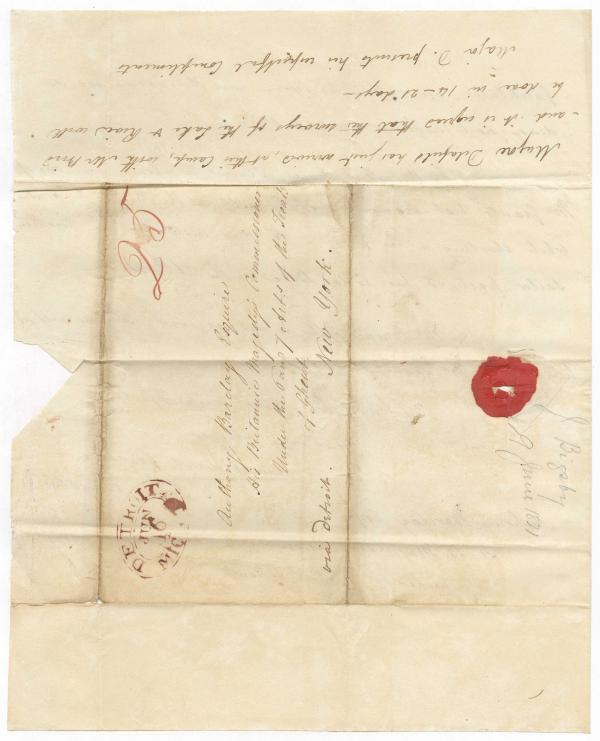 Major Delafield has just arrived, at this Camp, with Mr Bird
- and it is agreed that the surveys of the Lake & River will
be done in 14-21 days -
Major D. presents his respectful Compliments
Anthony Barclay Esquire
His Britannic Majesty's Commissioner
Under the 6 and 7 Arts of the Treaty
of Ghent
New York.
via Detroit.
DETROIT
JUN
16
J Bigsby
June 1821